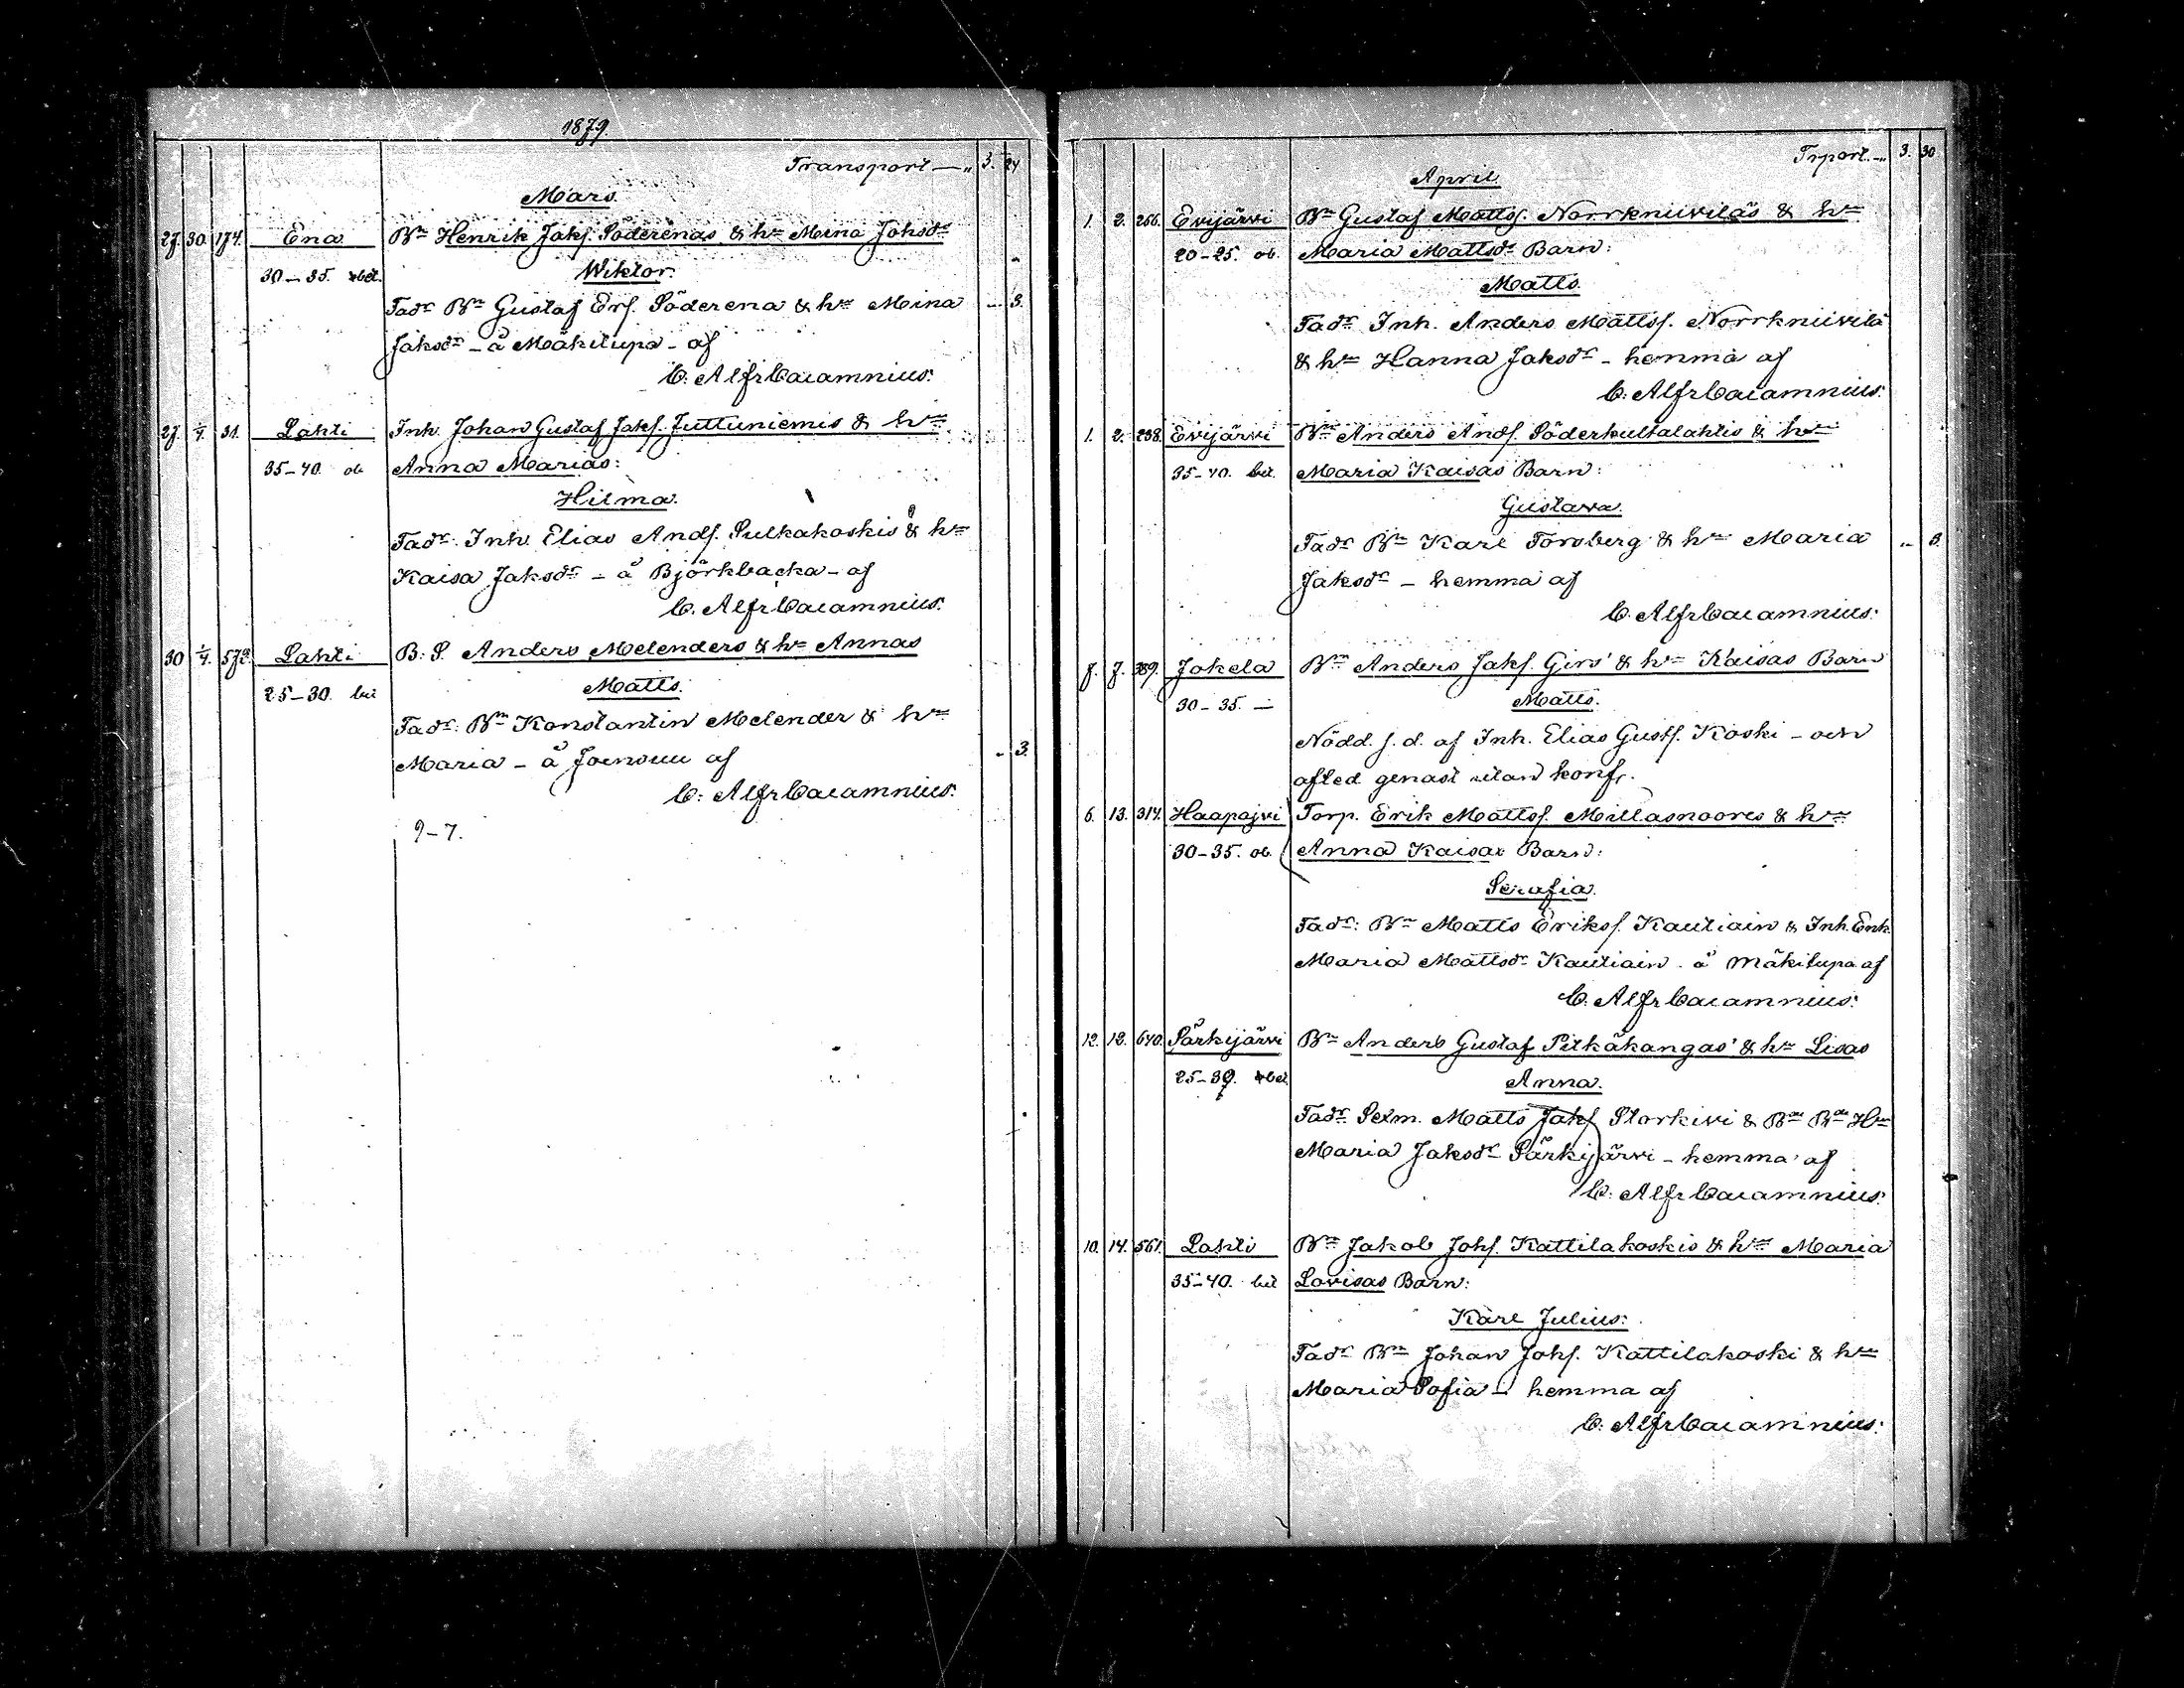 1879.
Transport — „ 3. 24
Mars.
27. 30. 174. Ena Bn Henrik Jakf. Söderenas & hn Mina Johsdr
30–35. bet. Wiktor.
Fadr Bn Gustaf Erf. Söderena & hn Mina – 3.
Jaksdr – å Mäkitupa – af
C. Alfr Cajamnius.
27. 1/4. 31. Lahti Inh. Johan Gustaf Jakf. Juttuniemis & hn
35–40. ob Anna Marias:
Hilma.
Fadr: Inh. Elias Andf. Sulkakoskis & hn
Kaisa Jaksdr – å Björkbacka – af
C. Alfr Cajamnius.
30 1/4. 572. Lahti B. S. Anders Melenders & hn Annas
25–30. bet Matts.
Fadr: Bn Konstantin Melender & hn
Maria – å Joensuu af – 3.
C. Alfr Cajamnius.
9–7.
Trport. – „ 3. 30
April.
1. 2. 256. Evijärvi Bn Gustaf Mattsf. Norrkniiviläs & hn
20–25. ob. Maria Mattsdr Barn:
Matts.
Fadr Inh. Anders Mattsf. Norrkniivilä
& hn Hanna Jaksdr – hemma af
C. Alfr Cajamnius.
1. 2. 238. Evijärvi Bn Anders Andf. Söderkultalahtis & hn
35–40. bet. Maria Kaisas Barn:
Gustava.
Fadr Bn Karl Forsberg & hn Maria „ 3.
Jaksdr – hemma af
C. Alfr Cajamnius.
7. 7. 389. Jokela Bn Anders Jakf. Girs' & hn Kaisas Barn
30–35. — Matts.
Nödd. s. d. af Inh. Elias Gustf. Koski – och
afled genast utan konf.
6. 13. 314. Haapajvi Torp. Erik Mattsf. Millasnoores & hn
30–35. ob. Anna Kaisas Barn:
Serafia.
Fadr: Bn Matts Eriksf. Kautiain & Inh. Enk.
Maria Mattsdr Kautiain. å Mäkitupa af
C. Alfr Cajamnius.
12. 12. 640. Särkijärvi Bn Anders Gustaf Pitkäkangas' & hn Lisas
25–30. bet. Anna.
Fadr Sexm. Matts Jakf Storkivi & Bn Bn Hn
Maria Jaksdr Särkijärvi – hemma af
C. Alfr Cajamnius.
10. 14. 561. Lahti Bn Jakob Johf. Kattilakoskis & hn Maria
35–40. bet Lovisas Barn:
Karl Julius.
Fadr Bn Johan Johf. Kattilakoski & hn
Maria Sofia – hemma af
C. Alfr Cajamnius.